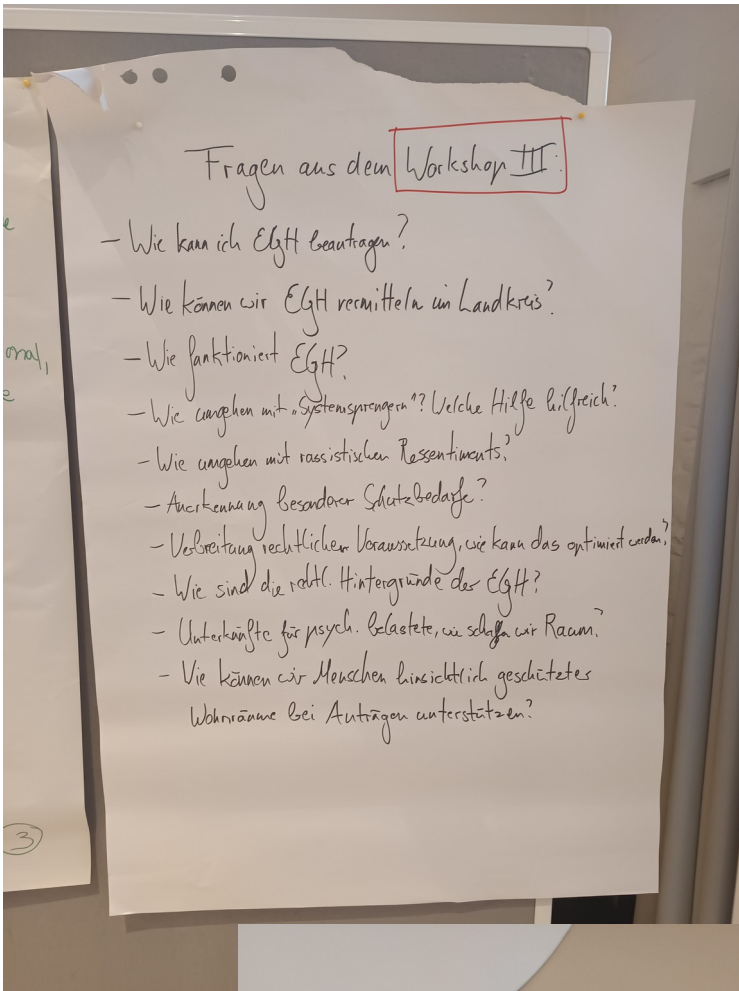 Fragen aus dem Workshop III:
- Wie kann ich EGH beantragen?
- Wie können wir EGH vermitteln im Landkreis?
- Wie funktioniert EGH?
- Wie umgehen mit „Systemsprengern"? Welche Hilfe hilfreich?
- Wie umgehen mit rassistischen Ressentiments?
- Anerkennung besonderer Schutzbedarfe?
- Verbreitung rechtlicher Voraussetzung, wie kann das optimiert werden?
- Wie sind die rechtl. Hintergründe der EGH?
- Unterkünfte für psych. belastete, wie schaffen wir Raum?
- Wie können wir Menschen hinsichtlich geschützter
Wohnräume bei Anträgen unterstützen?
e
onal,
e
3